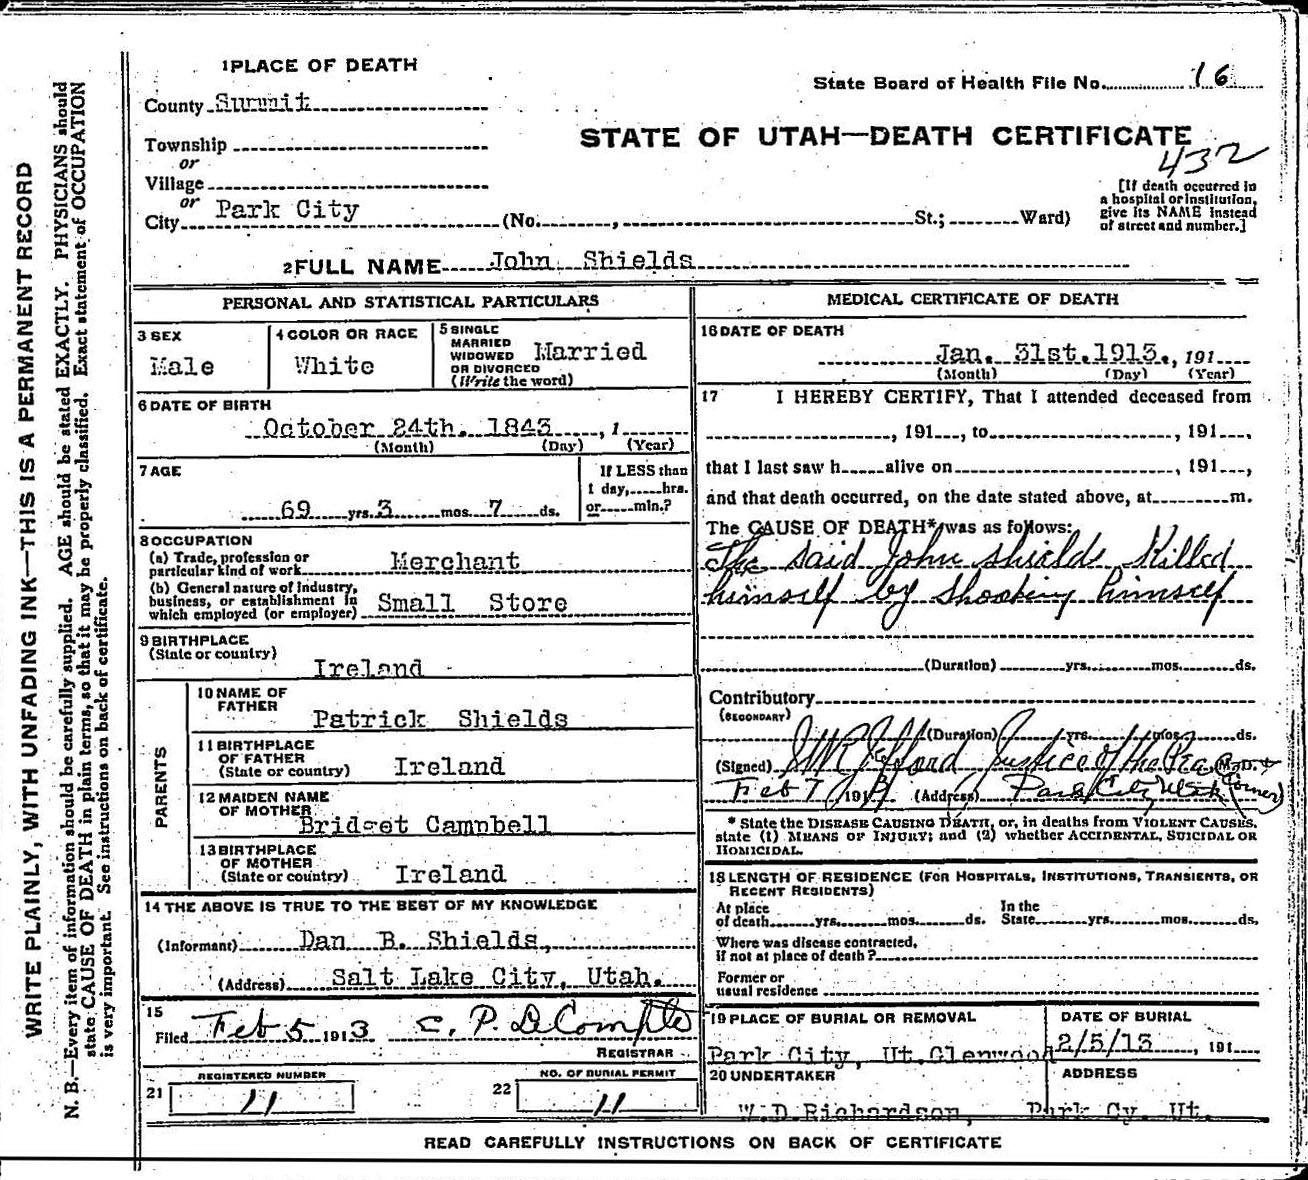 WRITE PLAINLY, WITH UNFADING INK—THIS IS A PERMANENT RECORD
N. B.—Every item of information should be carefully supplied. AGE should be stated EXACTLY. PHYSICIANS should
state CAUSE OF DEATH in plain terms, so that it may be properly classified. Exact statement of OCCUPATION
is very important. See instructions on back of certificate.
1 PLACE OF DEATH
County Summit
State Board of Health File No. 16
STATE OF UTAH—DEATH CERTIFICATE
432
Township
or
Village
or
City Park City (No. , St.; Ward)
[If death occurred in
a hospital or institution,
give its NAME instead
of street and number.]
2 FULL NAME John Shields
PERSONAL AND STATISTICAL PARTICULARS
3 SEX
Male
4 COLOR OR RACE
White
5 SINGLE
MARRIED
WIDOWED
OR DIVORCED
(Write the word)
Married
6 DATE OF BIRTH
October 24th. 1843 , 1
(Month) (Day) (Year)
7 AGE
69 yrs. 3 mos. 7 ds.
If LESS than
1 day, hrs.
or min.?
8 OCCUPATION
(a) Trade, profession or
particular kind of work Merchant
(b) General nature of industry,
business, or establishment in
which employed (or employer) Small Store
9 BIRTHPLACE
(State or country)
Ireland
PARENTS
10 NAME OF
FATHER
Patrick Shields
11 BIRTHPLACE
OF FATHER
(State or country) Ireland
12 MAIDEN NAME
OF MOTHER
Bridget Campbell
13 BIRTHPLACE
OF MOTHER
(State or country) Ireland
14 THE ABOVE IS TRUE TO THE BEST OF MY KNOWLEDGE
(Informant) Dan B. Shields,
(Address) Salt Lake City, Utah.
15
Filed Feb 5 1913 C. P. DeCompte
REGISTRAR
REGISTERED NUMBER
21 11
NO. OF BURIAL PERMIT
22 11
MEDICAL CERTIFICATE OF DEATH
16 DATE OF DEATH
Jan. 31st. 1913. , 191
(Month) (Day) (Year)
17 I HEREBY CERTIFY, That I attended deceased from
, 191 , to , 191 ,
that I last saw h alive on , 191 ,
and that death occurred, on the date stated above, at m.
The CAUSE OF DEATH* was as follows:
The said John Shields Killed
himself by shooting himself
(Duration) yrs. mos. ds.
Contributory
(SECONDARY)
(Duration) yrs. mos. ds.
(Signed) Justice of the Peace M.D. &
Feb 7 1913 (Address) Park City Utah (Corner)
* State the DISEASE CAUSING DEATH, or, in deaths from VIOLENT CAUSES,
state (1) MEANS OF INJURY; and (2) whether ACCIDENTAL, SUICIDAL OR
HOMICIDAL.
18 LENGTH OF RESIDENCE (FOR HOSPITALS, INSTITUTIONS, TRANSIENTS, OR
RECENT RESIDENTS)
At place
of death yrs. mos. ds.
In the
State yrs. mos. ds.
Where was disease contracted,
if not at place of death?
Former or
usual residence
19 PLACE OF BURIAL OR REMOVAL
Park City, Ut. Glenwood
DATE OF BURIAL
2/5/13 , 191
20 UNDERTAKER
W.D. Richardson,
ADDRESS
Park Cy. Ut.
READ CAREFULLY INSTRUCTIONS ON BACK OF CERTIFICATE